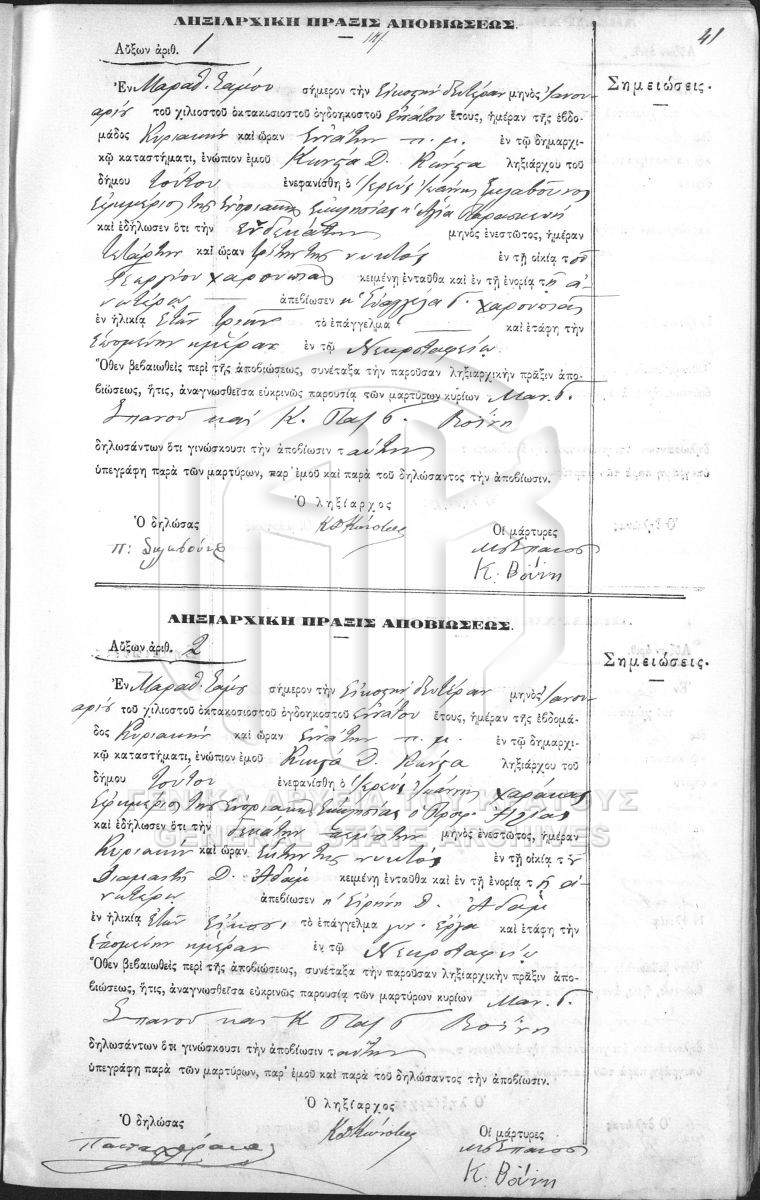 41
ΛΗΞΙΑΡΧΙΚΗ ΠΡΑΞΙΣ ΑΠΟΒΙΩΣΕΩΣ.
Αὔξων ἀριθ. 1
Σημειώσεις.
Ἐν Μαραθ. σήμερον τὴν Εἰκοστὴν δευτέραν μηνὸς Ἰανου
αρίου τοῦ χιλιοστοῦ ὀκτακοσιοστοῦ ὀγδοηκοστοῦ ἐννάτου ἔτους, ἡμέραν τῆς ἑβδο-
μάδος Κυριακὴν καὶ ὥραν ἐννάτην π. μ. ἐν τῷ δημαρχι-
κῷ καταστήματι, ἐνώπιον ἐμοῦ Κώνστα Δ. Κώνστα ληξιάρχου τοῦ
δήμου τούτου ἐνεφανίσθη ὁ ἱερεὺς Ἰωάννης
ἐφημέριος τῆς ἐνοριακῆς ἐκκλησίας ἡ Ἁγία Παρασκευὴ
καὶ ἐδήλωσεν ὅτι τὴν ἑνδεκάτην μηνὸς ἐνεστῶτος, ἡμέραν
τετάρτην καὶ ὥραν τρίτην τῆς νυκτὸς ἐν τῇ οἰκίᾳ τοῦ
Γεωργίου κειμένῃ ἐνταῦθα καὶ ἐν τῇ ἐνορίᾳ τῇ ἀ-
νωτέρω ἀπεβίωσεν ἡ
ἐν ἡλικίᾳ ἐτῶν τριῶν τὸ ἐπάγγελμα — καὶ ἐτάφη τὴν
ἑπομένην ἡμέραν ἐν τῷ Νεκροταφείῳ
Ὅθεν βεβαιωθεὶς περὶ τῆς ἀποβιώσεως, συνέταξα τὴν παροῦσαν ληξιαρχικὴν πρᾶξιν ἀπο-
βιώσεως, ἥτις, ἀναγνωσθεῖσα εὐκρινῶς παρουσίᾳ τῶν μαρτύρων κυρίων Μαν. Γ.
Σπανοῦ καὶ Κ. Παξ Γ. Βοΐνη
δηλωσάντων ὅτι γινώσκουσι τὴν ἀποβίωσιν ταύτην
ὑπεγράφη παρὰ τῶν μαρτύρων, παρ' ἐμοῦ καὶ παρὰ τοῦ δηλώσαντος τὴν ἀποβίωσιν.
Ὁ ληξίαρχος
Ὁ δηλώσας
Οἱ μάρτυρες
Κ. Βοΐνη
ΛΗΞΙΑΡΧΙΚΗ ΠΡΑΞΙΣ ΑΠΟΒΙΩΣΕΩΣ.
Αὔξων ἀριθ. 2
Σημειώσεις.
Ἐν Μαραθ. σήμερον τὴν Εἰκοστὴν δευτέραν μηνὸς Ἰανου
αρίου τοῦ χιλιοστοῦ ὀκτακοσιοστοῦ ὀγδοηκοστοῦ ἐννάτου ἔτους, ἡμέραν τῆς ἑβδομά-
δος Κυριακὴν καὶ ὥραν ἐννάτην π. μ. ἐν τῷ δημαρχι-
κῷ καταστήματι, ἐνώπιον ἐμοῦ Κώνστα Δ. Κώνστα ληξιάρχου τοῦ
δήμου τούτου ἐνεφανίσθη ὁ ἱερεὺς Ἰωάννης Χαράκας
ἐφημέριος τῆς ἐνοριακῆς ἐκκλησίας ὁ Προφ. Ἠλίας
ΓΕΝΙΚΑ ΑΡΧΕΙΑ ΤΟΥ ΚΡΑΤΟΥΣ
GENERAL STATE ARCHIVES
καὶ ἐδήλωσεν ὅτι τὴν δεκάτην μηνὸς ἐνεστῶτος, ἡμέραν
Κυριακὴν καὶ ὥραν ἕκτην τῆς νυκτὸς ἐν τῇ οἰκίᾳ
Διαμαντῆ Δ. Ἀδαμ κειμένῃ ἐνταῦθα καὶ ἐν τῇ ἐνορίᾳ τῇ ἀ-
νωτέρω ἀπεβίωσεν ἡ Εἰρήνη Δ. Ἀδαμ
ἐν ἡλικίᾳ ἐτῶν εἴκοσι, τὸ ἐπάγγελμα γυν. ἔργα καὶ ἐτάφη τὴν
ἑπομένην ἡμέραν ἐν τῷ Νεκροταφείῳ
Ὅθεν βεβαιωθεὶς περὶ τῆς ἀποβιώσεως, συνέταξα τὴν παροῦσαν ληξιαρχικὴν πρᾶξιν ἀπο-
βιώσεως, ἥτις, ἀναγνωσθεῖσα εὐκρινῶς παρουσίᾳ τῶν μαρτύρων κυρίων Μαν. Γ.
Σπανοῦ καὶ Κ Παξ Γ Βοΐνη
δηλωσάντων ὅτι γινώσκουσι τὴν ἀποβίωσιν ταύτην
ὑπεγράφη παρὰ τῶν μαρτύρων, παρ' ἐμοῦ καὶ παρὰ τοῦ δηλώσαντος τὴν ἀποβίωσιν.
Ὁ ληξίαρχος
Ὁ δηλώσας
Οἱ μάρτυρες
Κ. Βοΐνη